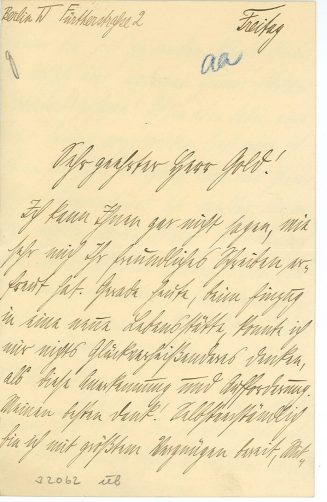 Berlin W Fürtherstraße 2
Freitag
aa
Sehr geehrter Herr Gold!
Ich kann Ihnen gar nicht sagen, wie
sehr mich Ihr freundliches Schreiben er-
freut hat. Gerade heute, beim Einzug
in eine neue Lebensstätte konnte ich
mir nichts Glückverheißenderes denken,
als diese Anerkennung und Aufforderung.
Meinen besten Dank! Selbstverständlich
bin ich mit größtem Vergnügen bereit,
32062 üb